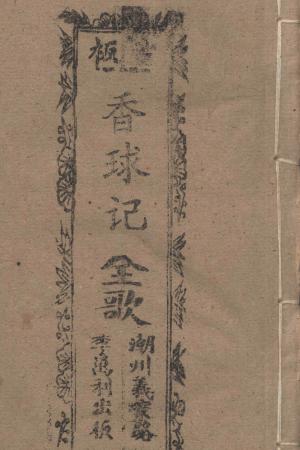 香球记
全歌
潮州義安路
李萬利出版